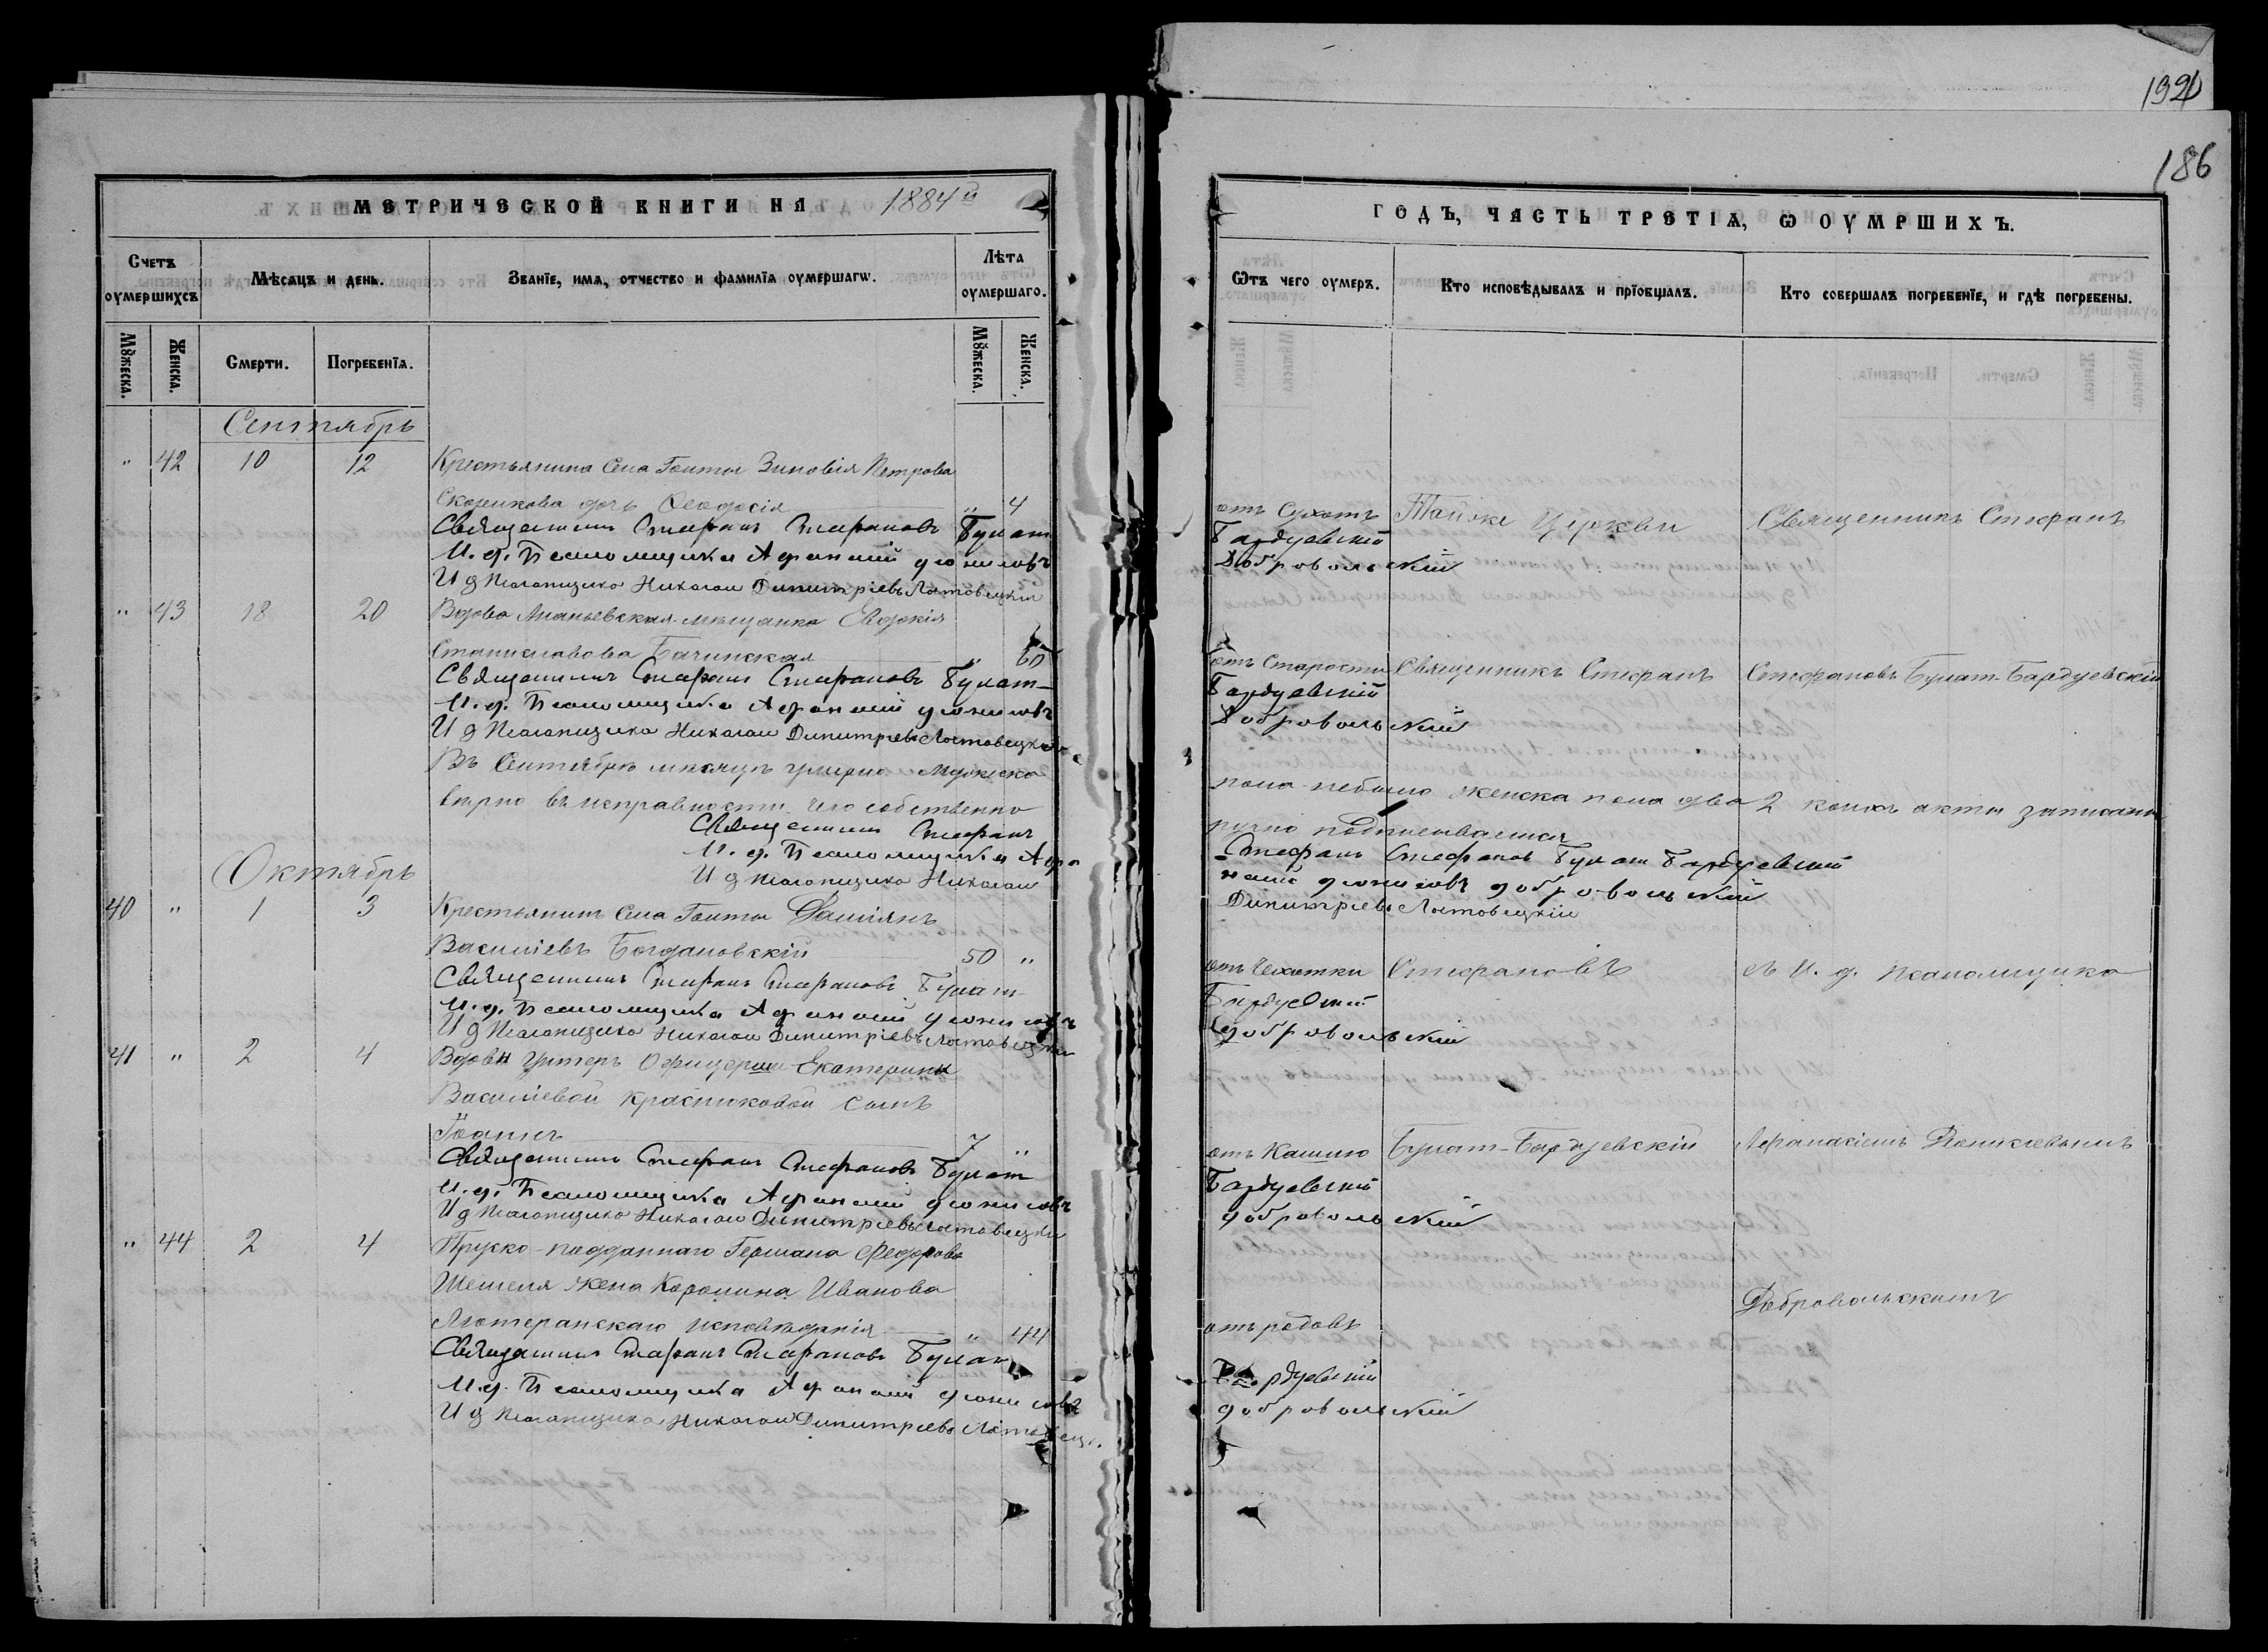 1920
186
МЕТРИЧЕСКОЙ КНИГИ НА 1884й
ГОДЪ, ЧАСТЬ ТРЕТІѦ, Ѡ ОУМРШИХЪ.
Счетъ оумершихсѧ
Мѣсѧцъ и день.
Званїе, имѧ, отчество и фамилїѧ оумершагѡ.
Лѣта оумершаго.
Ѿтъ чего оумеръ.
Кто исповѣдывалъ и прїобщалъ.
Кто совершалъ погребенїе, и гдѣ погребены.
Мꙋжеска.
Женска.
Смерти.
Погребенїѧ.
Мꙋжеска.
Женска.
Сентябрь
" 42 10 12 Крестьянина Села Гоиты Зиновія Петрова
дочь Ѳеодосія " 4 отъ Сухотъ Тойже Церкви Священникъ Стефанъ
Священникъ Стефанъ Стефановъ Булат Бардуевскій
И. д. Псаломщика Афанасій Доникіевъ Добровольскій
И д Псаломщика Николай Димитріевъ Лотовецкій
" 43 18 20 Вдова Ананьевская мѣщанка Евдокія
Станиславова Бачинская " 60 отъ Старости Священникъ Стефанъ Стефановъ Булат-Бардуевскій
Священникъ Стефанъ Стефановъ Булат- Бардуевский
И. д. Псаломщика Афанасій Доникіевъ Добровольскій
И д Псаломщика Николай Димитріевъ Лотовецкій
Въ Сентябрѣ мѣсяцѣ умерло Мужеска пола небыло женска пола два 2 коихъ акты записаны
вѣрно въ исправности чего собственно ручно подписываемся
Священникъ Стефанъ Стефановъ Булат Бардуевский
И. д. Псаломщика Афанасій Доникіевъ Добровольскій
И д Псаломщика Николай Димитріевъ Лотовецкій
Октябрь
40 " 1 3 Крестьянинъ Села Гоиты Даміянъ
Василіевъ Богдановскій 50 " отъ Чехотки Стефановъ съ И. д. псаломщика
Священникъ Стефанъ Стефановъ Булат- Бардуевский
И. д. Псаломщика Афанасій Доникіевъ Добровольскій
И д Псаломщика Николай Димитріевъ Лотовецкій
41 " 2 4 Вдовы Унтеръ Офицерши Екатерины
Василіевой Краснюковой сынъ
Іоаннъ 7 " отъ Кашлю Булат-Бардуевскій Афанасіемъ Доникіевымъ
Священникъ Стефанъ Стефановъ Булат Бардуевский
И. д. Псаломщика Афанасій Доникіевъ Добровольскій
И д Псаломщика Николай Димитріевъ Лотовецкій
" 44 2 4 Пруско-подданнаго Германа Федорова
Шемеля жена Каролина Иванова Добровольскимъ
Лютеранскаго исповѣданія " 44 отъ родовъ
Священникъ Стефанъ Стефановъ Булат Бардуевский
И. д. Псаломщика Афанасій Доникіевъ Добровольскій
И д Псаломщика Николай Димитріевъ Лотовецк.